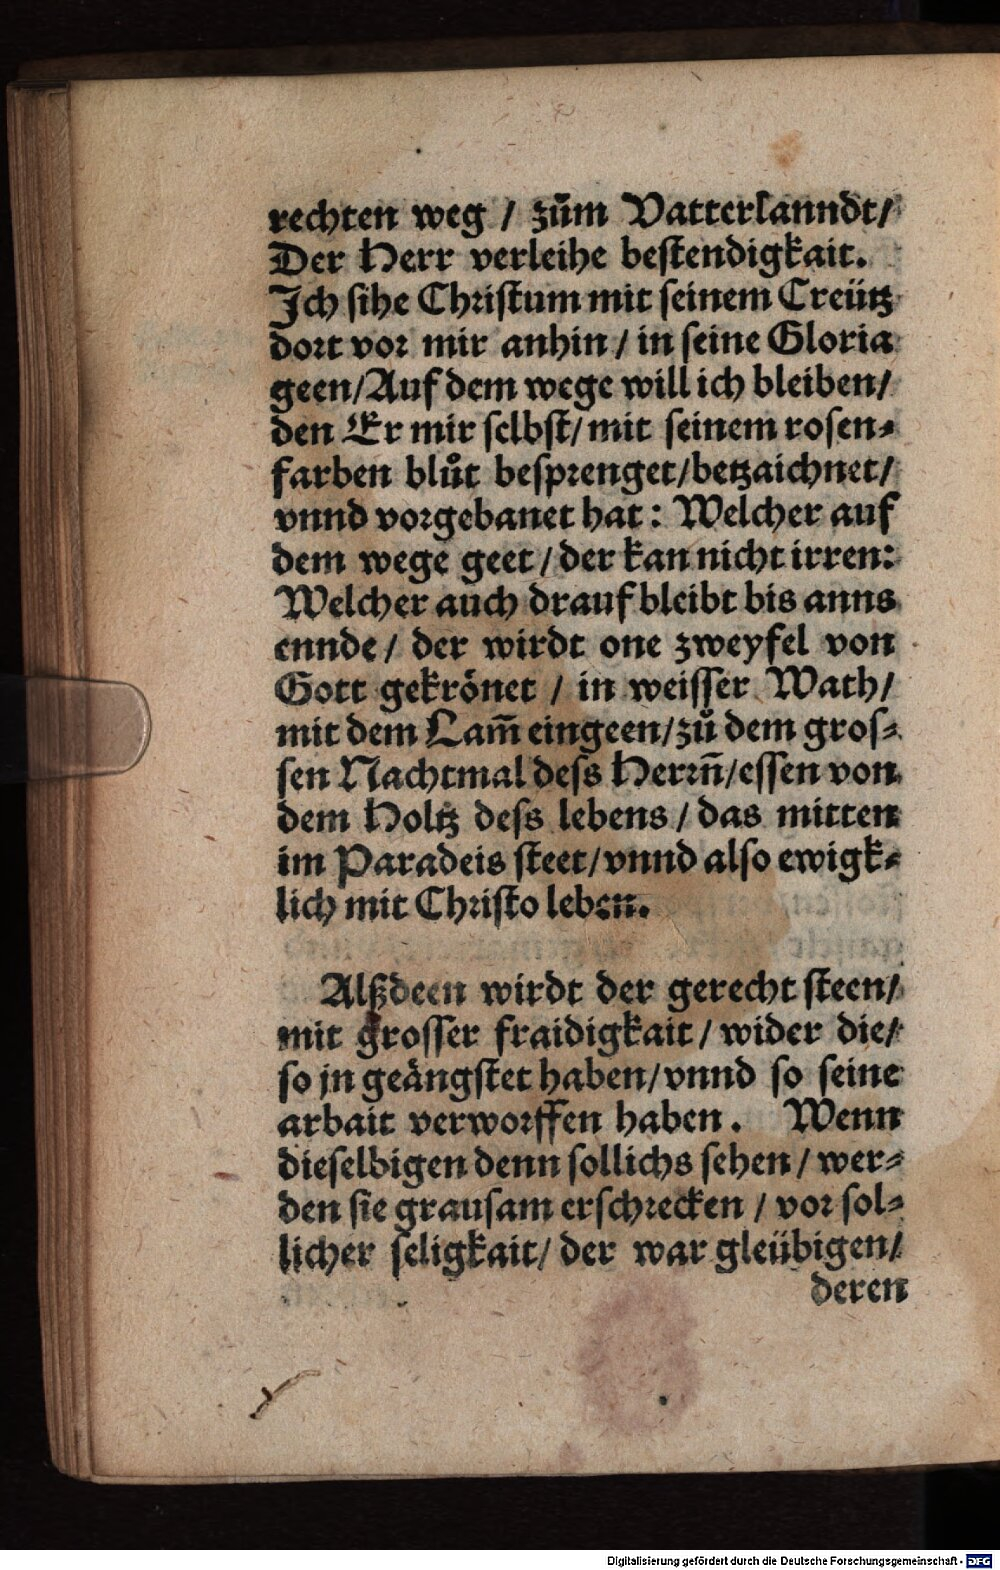 rechten weg / zům Vatterlanndt/
Der Herr verleihe bestendigkait.
Jch sihe Christum mit seinem Creütz
dort vor mir anhin / in seine Gloria
geen/Auf dem wege will ich bleiben/
den Er mir selbst/ mit seinem rosen⸗
farben blůt besprenget/betzaichnet/
vnnd vorgebanet hat : Welcher auf
dem wege geet / der kan nicht irren:
Welcher auch drauf bleibt bis anns
ennde / der wirdt one zweyfel von
Gott gekrönet / in weisser Wath/
mit dem Lam̄ eingeen/zů dem gros⸗
sen Nachtmal dess Herrn̄/essen von
dem Holtz dess lebens / das mitten
im Paradeis steet/vnnd also ewigk⸗
lich mit Christo leben.
Alßdeen wirdt der gerecht steen/
mit grosser fraidigkait / wider die/
so jn geängstet haben/vnnd so seine
arbait verworffen haben. Wenn
dieselbigen denn sollichs sehen / wer⸗
den sie grausam erschrecken / vor sol⸗
licher seligkait/ der war gleübigen/
deren
Digitalisierung gefördert durch die Deutsche Forschungsgemeinschaft - DFG